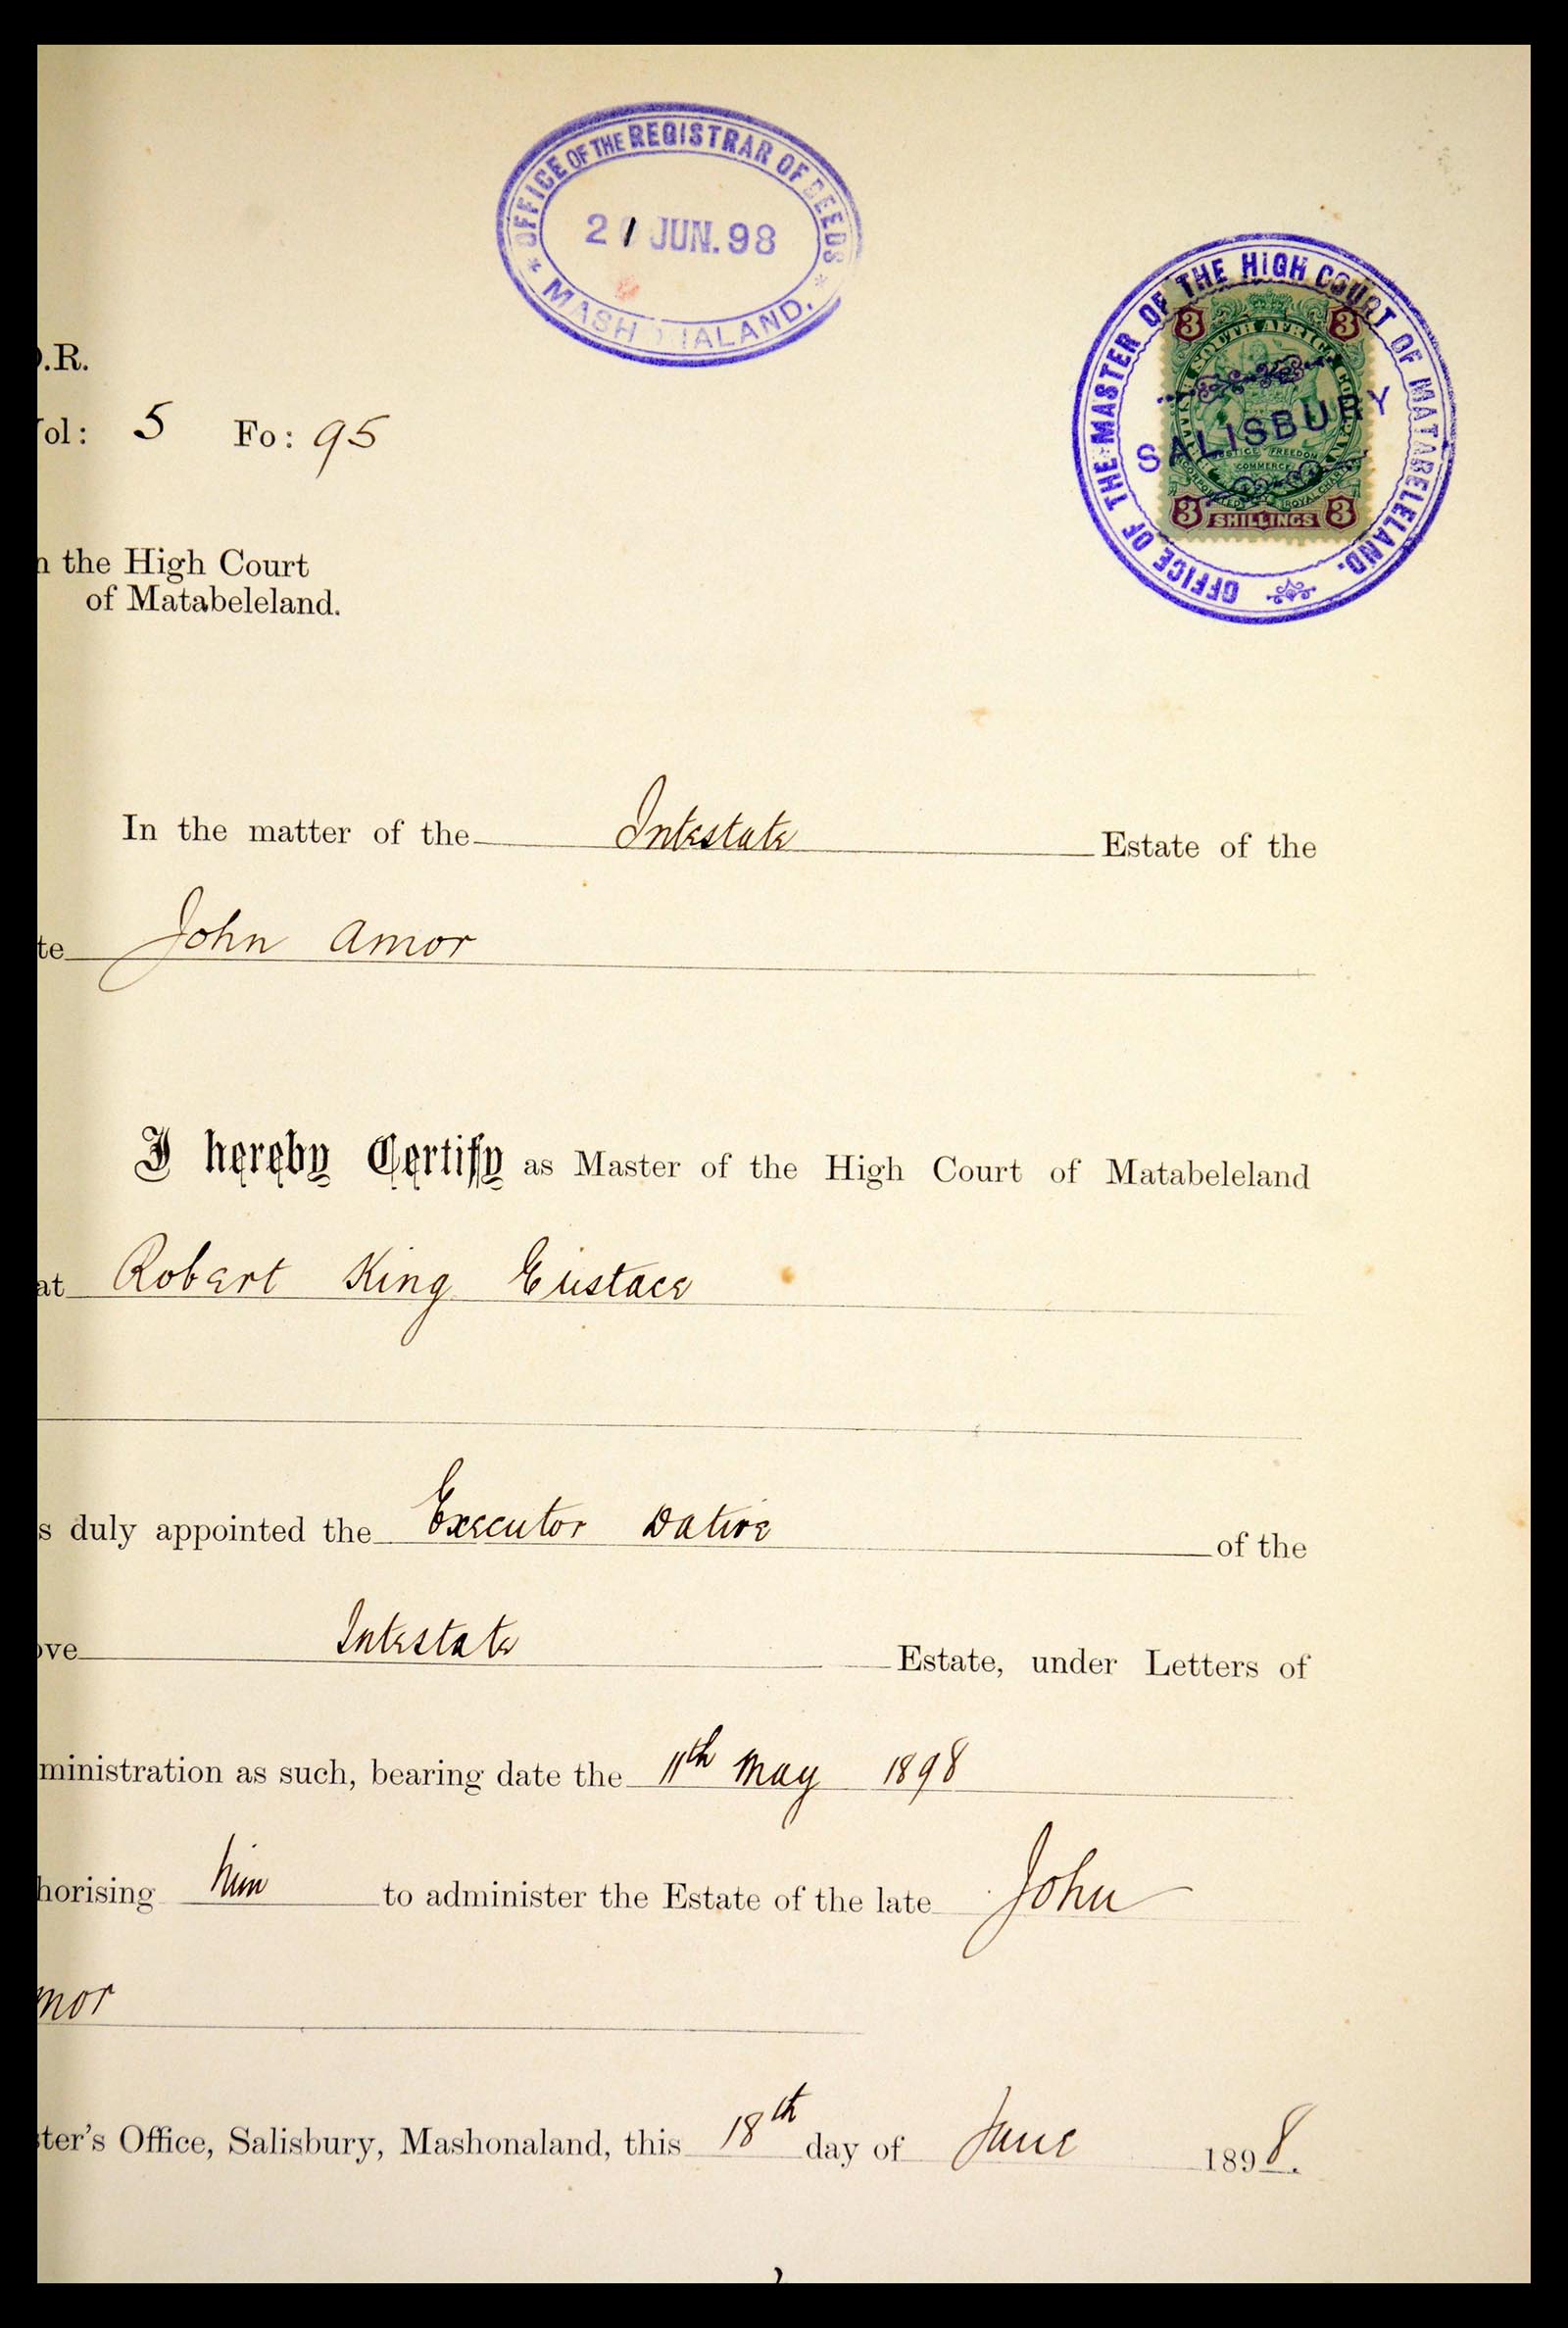 OFFICE OF THE REGISTRAR OF DEEDS
21 JUN. 98
MASHONALAND.
OFFICE OF THE MASTER OF THE HIGH COURT OF MATABELELAND.
SALISBURY
3 3
SOUTH AFRICA
JUSTICE FREEDOM
COMMERCE
ROYAL CHARTER
3 SHILLINGS 3
.R.
ol: 5 Fo: 95
n the High Court
of Matabeleland.
In the matter of the Intestate Estate of the
te John Amor
I hereby Certify as Master of the High Court of Matabeleland
at Robert King Eustace
s duly appointed the Executor Dative of the
ve Intestate Estate, under Letters of
ministration as such, bearing date the 11th May 1898
horising him to administer the Estate of the late John
mor
ter's Office, Salisbury, Mashonaland, this 18th day of June 1898.